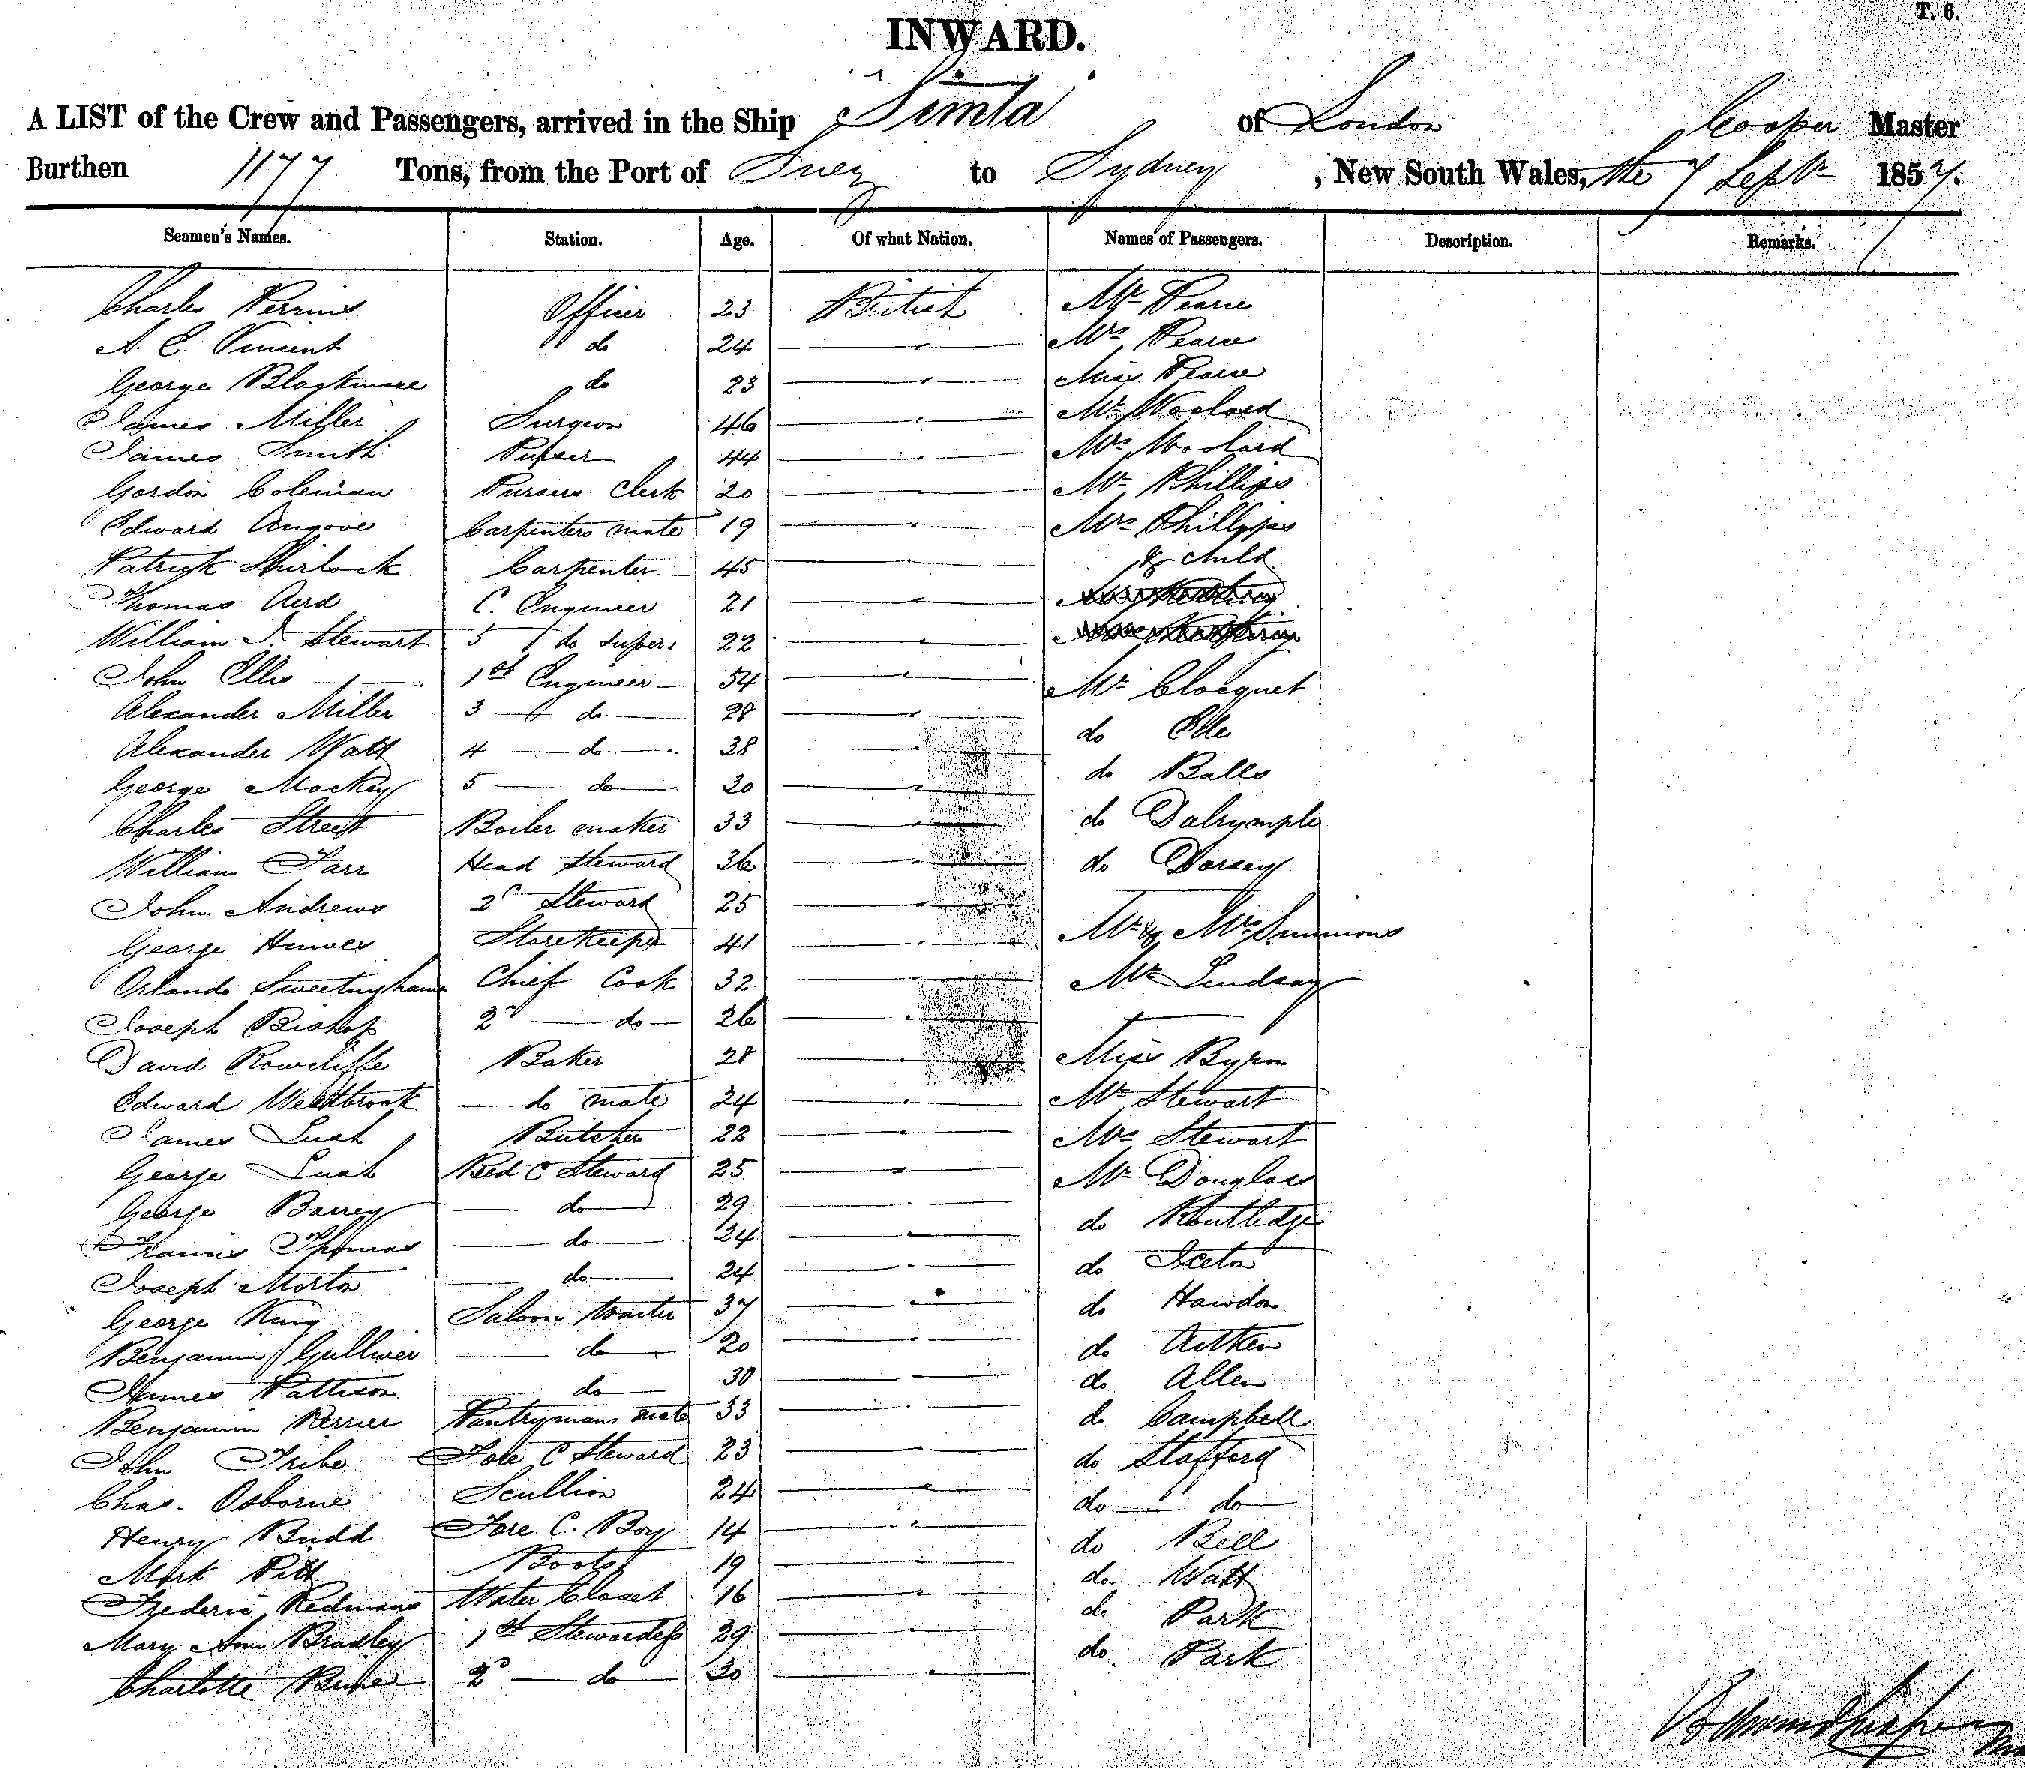 T. 6.
INWARD.
A LIST of the Crew and Passengers, arrived in the Ship Simla of London Cooper Master
Burthen 1177 Tons, from the Port of Suez to Sydney, New South Wales, the 7 Septr 1857.
Seamen's Names. Station. Age. Of what Nation. Names of Passengers. Description. Remarks.
Charles Perrins Officer 23 British Mr Pearce
A. E. Vincent do 24 " Mrs Pearce
George Blackmore do 23 " Miss Pearce
James Miller Surgeon 46 " Mr Woolard
James Smith Purser 44 " Mrs Woolard
Gordon Coleman Pursers Clerk 20 " Mr Phillips
Edward Angove Carpenters mate 19 " Mrs Phillips
Patrick Shirlock Carpenter 45 " & child
Thomas Aird C. Engineer 21 "
William J. Stewart 5 do supers 22 "
John Ellis 1st Engineer 54 " Mr Clocquet
Alexander Miller 3 do 28 " do Ede
Alexander Watt 4 do 38 " do Balls
George Mackey 5 do 30 " do Dalrymple
Charles Street Boiler maker 33 "
William Farr Head Steward 36 " do Dorsey
John Andrews 2d Steward 25 "
George Humes Storekeeper 41 " Mr & Mrs Simmons
Orlando Sweetingham Chief Cook 32 " Mr Lindsay
Joseph Bishop 2d do 26 "
David Rowcliffe Baker 28 " Miss Byron
Edward Westbrook do mate 24 " Mr Stewart
James Lush Butcher 22 " Mrs Stewart
George Lush Bed C Steward 25 " Mr Douglass
George Barrey do 29 " do Routledge
Francis Thomas do 24 " do Iceton
Joseph Morton do 24 " do Hawdon
George King Saloon Waiter 37 "
Benjamin Gulliver do 20 " do Aitken
James Pattison do 30 " do Allen
Benjamin Perrier Pantrymans mate 33 " do Campbell
John Tribe Fore C Steward 23 " do Stafford
Chas. Osborne Scullion 24 " do do
Henry Budd Fore C. Boy 14 " do Bell
Mark Pitt Boots 19 " do Watt
Frederic Redmans Water Closet 16 " do Park
Mary Ann Bradley 1st Stewardess 29 " do Park
Charlotte 2d do 30 "